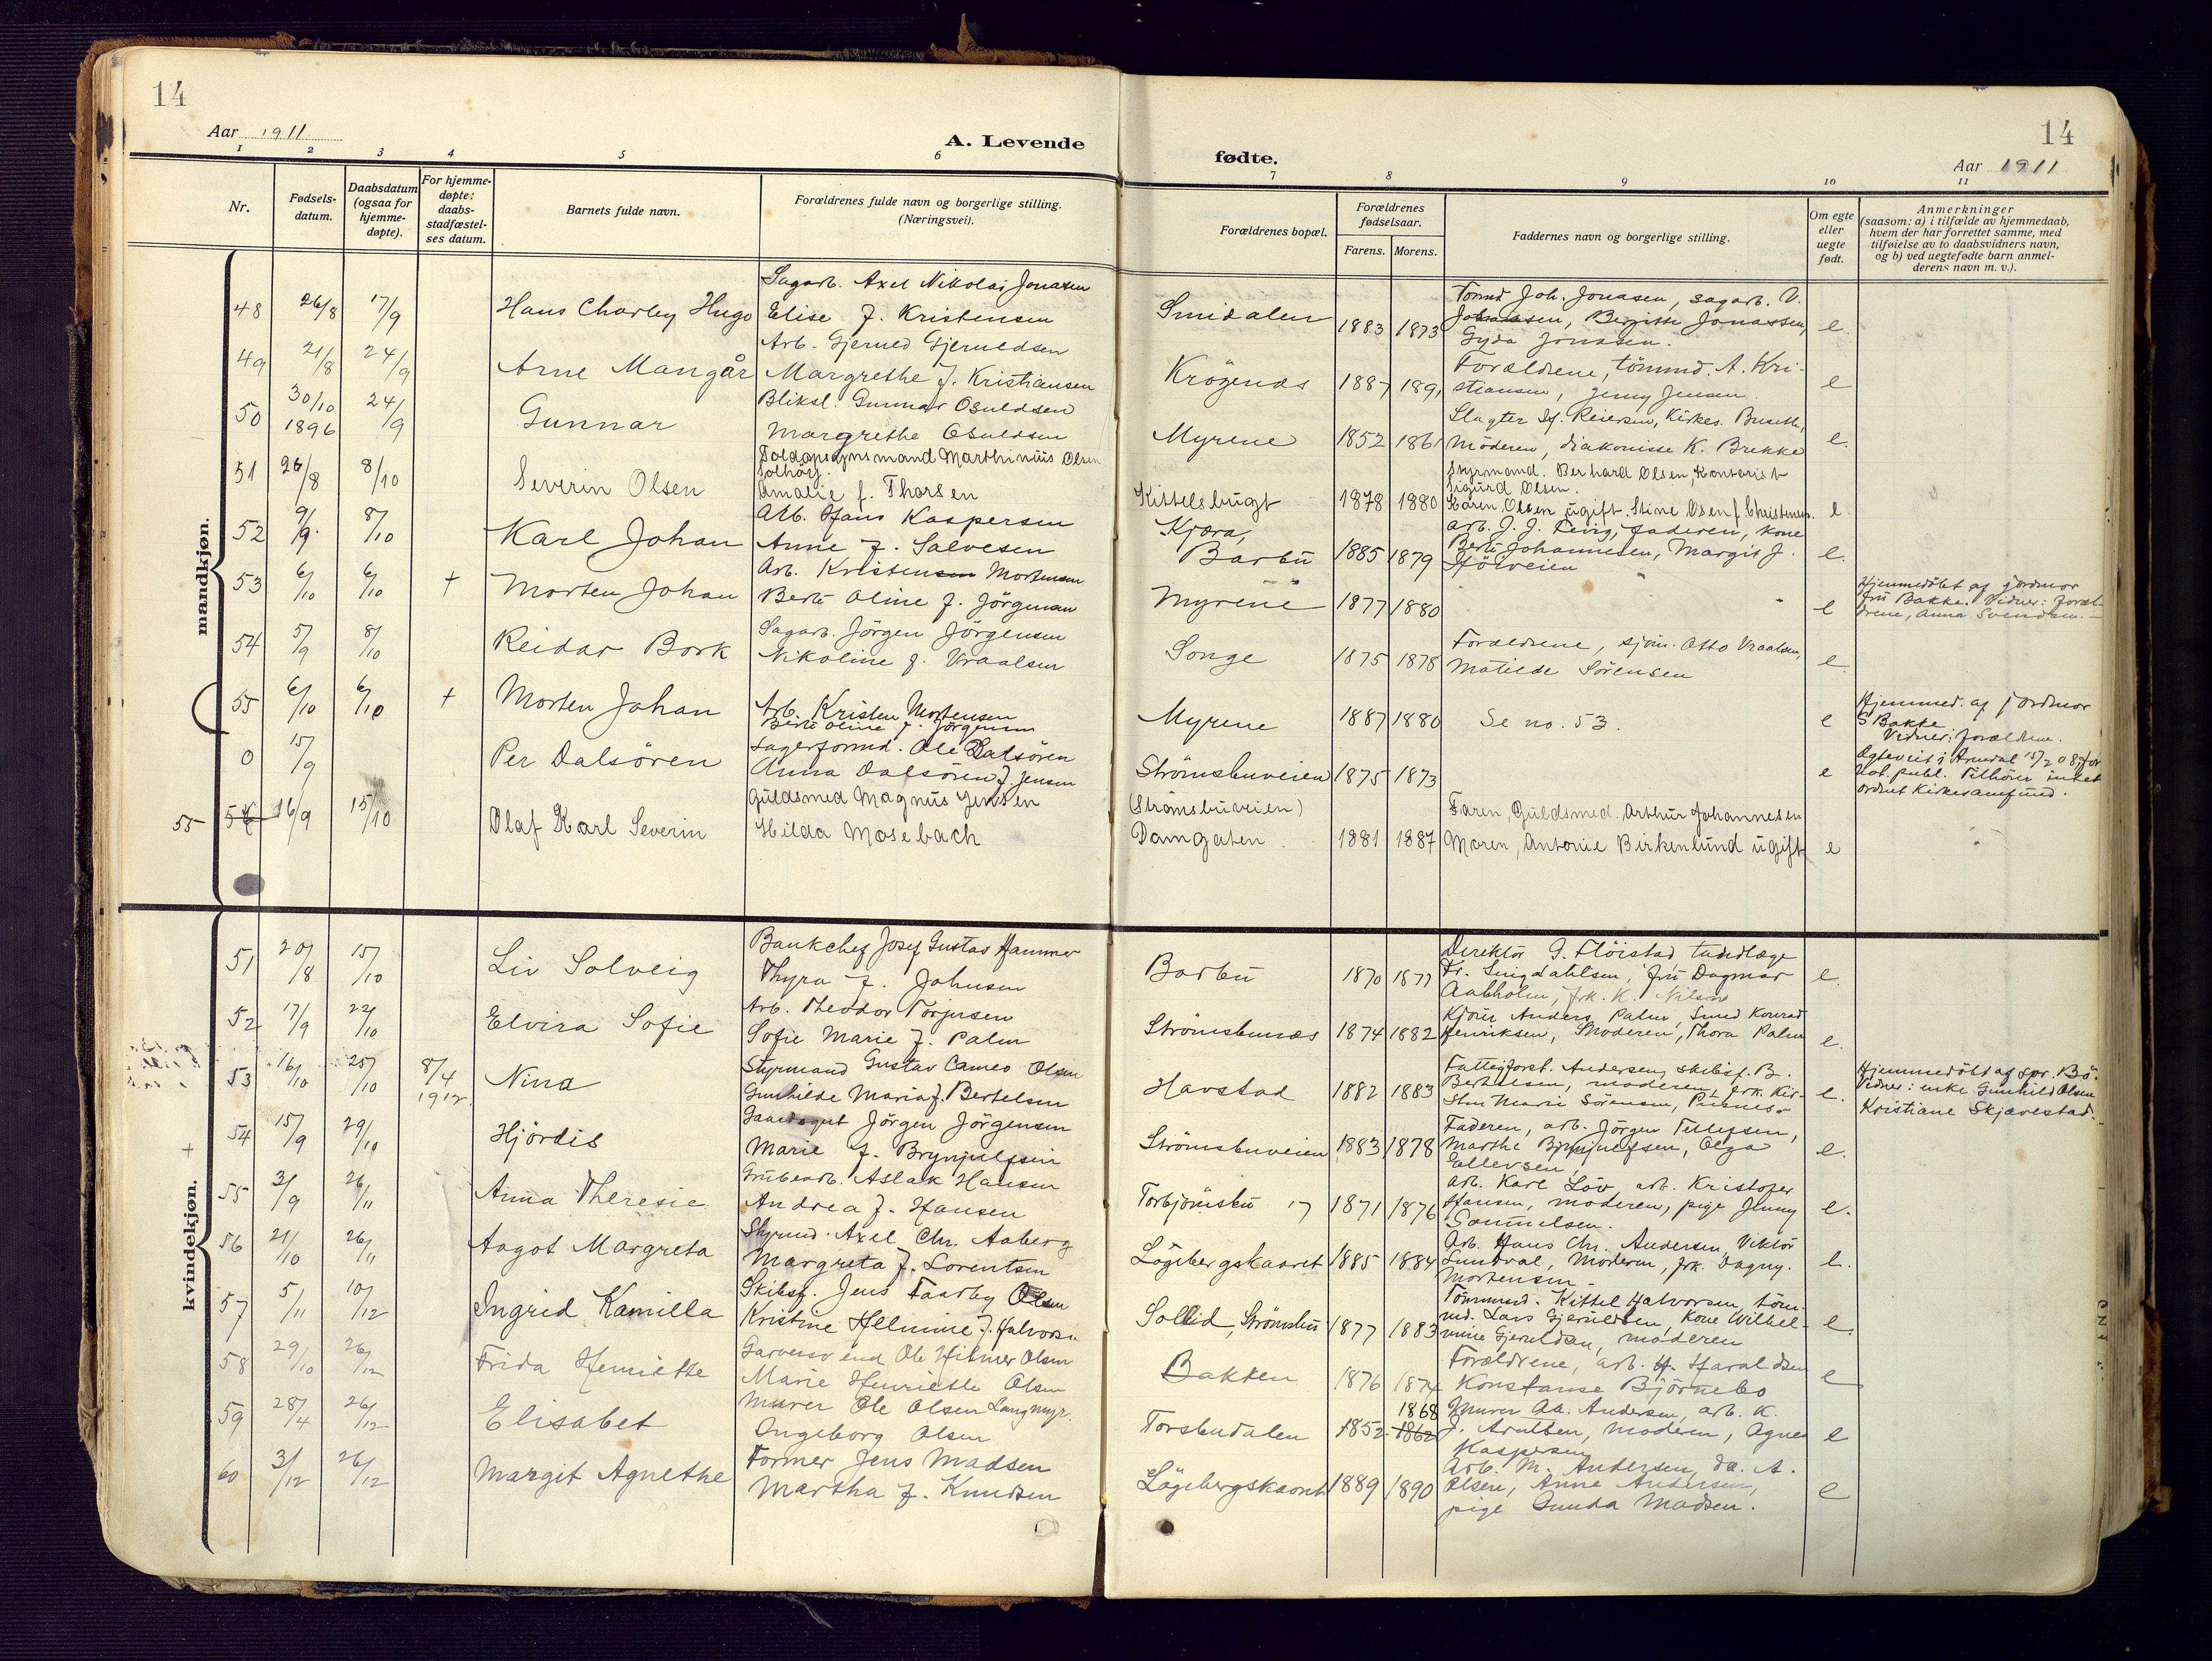 14
Aar 1911
A. Levende
1 2 3 4 5 6
Nr.
Fødsels-
datum.
Daabsdatum
(ogsaa for
hjemme-
døpte).
For hjemme-
døpte:
daabs-
stadfæstel-
ses datum.
Barnets fulde navn.
Forældrenes fulde navn og borgerlige stilling.
(Næringsvei).
14
fødte.
Aar 1911
7 8 9 10 11
Forældrenes bopæl.
Forældrenes
fødselsaar.
Farens. Morens.
Faddernes navn og borgerlige stilling.
Om egte
eller
uegte
født.
Anmerkninger
(saasom: a) i tilfælde av hjemmedaab,
hvem der har forrettet samme, med
tilføielse av to daabsvidners navn,
og b) ved uegtefødte barn anmel-
derens navn m. v.).
mandkjøn.
48 26/8 17/9 Hans Charley Hugo
Sagarb. Axel Nikolai Jonasen
Elise f. Kristensen
Smidalen 1883 1873
Joh. Jonasen, sagarb. V.
Johansen, Bergitte Jonassen,
Gyda Jonasen.
e.
49 21/8 24/9 Arne Mangår
Arb. Gjeruld Gjeruldsen
Margrethe f. Kristiansen
Krögenes 1887 1891
Forældrene, tömmd. A. Kri-
stiansen, Jenny Jensen.
e
50 30/10 1896 24/9 Gunnar
Bliksl. Gunnar Osuldsen
Margrethe Osuldsen
Myrene 1852 1861
Slagter Reiersen, Kirkes. Buseth,
Moderen, diakonisse K. Brekke
e.
51 26/8 8/10 Severin Olsen
Toldopsynsmand Marthinius Olsen
Solhöy.
Amalie f. Thorsen
Kittelsbugt 1878 1880
Styrmand. Berhard Olsen, Kontorist
Sigurd Olsen.
Karen Olsen ugift. Stine Olsen f. Christensen.
e.
52 9/9 8/10 Karl Johan
Arb. Hans Kaspersen
Anne f. Salvesen
Kjøra,
Barbu 1885 1879
arb. J. J. Fevig, Faderen, kone
Berte Johannesen, Margit J.
e.
53 6/10 6/10 + Morten Johan
Arb. Kristensen Mortensen
Berte Oline f. Jörgensen
Myrene 1877 1880
e
Hjemmedöbt af jordmor
fru Bakke. Vidner: foræl-
drene, Anna Svendsen.
54 5/9 8/10 Reidar Bork
Sagarb. Jörgen Jörgensen
Nikoline f. Vraalsen
Songe 1875 1878
Forældrene, sjöm. Otto Vraalsen,
Matilde Sörensen
e.
55 6/10 6/10 + Morten Johan
Arb. Kristen Mortensen
Berte Oline f. Jörgensen
Myrene 1887 1880
Se no. 53.
e
Hjemmed. af jordmor
S Bakke
Vidner: forældrene.
0 15/9 Per Dalsören
Lagerformd. Ole Dalsören
Anna Dalsören f. Jensen
Strömsbuveien 1875 1873
e
Ægteviet i Arendal 15/2 08 for
Not. publ. Tilhörer intet
ordnet Kirkesamfund.
55 56 16/9 15/10 Olaf Karl Severin
Guldsmed Magnus Jensen
Hilda Mosebach
(Strömsbuveien)
Damgaten 1881 1887
Faren, Guldsmed. Arthur Johannesen
Moren, Antonie Birkenlund ugift
e
kvindekjøn.
51 20/8 15/10 Liv Solveig
Bankchef Josef Gustav Hammer
Thyra f. Johnsen
Barbu 1870 1877
Direktör G. Flöistad tandlæge
Fr. Lingdahlsen, fru Dagmar
Aabholm, frk. K. Nilsen
e.
52 17/9 22/10 Elvira Sofie
Arb. Theodor Torjusen
Sofie Marie f. Palm
Strömsbunæs 1874 1882
Anders Palm, Smed Konrad
Henriksen, Moderen, Thora Palm
e.
53 16/10 25/10 8/4 1912 Nina
Styrmand Gustav Cameo Olsen
Gunhilde Maria f. Bertelsen
Havstad 1882 1883
Fattigforst. Andersen, skibsf. B.
Bertelsen, moderen, frk. Kir-
sten Marie Sörensen,
e.
Hjemmedöbt af spr. Bö.
Vidner: enke Gunhild Olsen
Kristiane Skjævestad.
+
54 15/9 29/10 Hjördis
Gaardsgut Jörgen Jörgensen
Marie f. Brynjulfsen
Strömsbuveien 1883 1878
Faderen, arb. Jörgen Tellefsen,
Marthe Brynjulfsen, Olga
Ellevsen
e.
55 3/9 26/11 Anna Theresie
Grubearb. Aslak Hansen
Andrea f. Hansen
Torbjörnsbu 17 1871 1876
arb. Karl Löv, arb. Kristofer
Hansen, moderen, pige Jenny
Samuelsen.
e.
56 21/10 26/11 Aagot Margreta
Styrmd. Axel Chr. Aaberg
Margreta f. Lorentsen
Lögebergskaaret 1885 1884
Arb. Hans Chr. Andersen, Viktor
Sundval, Moderen, frk. Dagny.
Mortensen.
e.
57 5/11 10/12 Ingrid Kamilla
Skibsf. Jens Taarby Olsen
Kristine Helmine f. Halvorsen
Sollid, Strömsbu 1877 1883
Tömmermd. Kittel Halvorsen, töm-
md. Lars Gjeruldsen, Kone Wilhel-
mine Gjeruldsen, moderen
e.
58 29/10 26/12 Frida Henriette
Garversvend Ole Hilmer Olsen
Marie Henriette Olsen
Bakken 1876 1874
Forældrene, arb. H. Haraldsen
Konstanse Björnebo
e
59 28/4 26/12 Elisabet
Murer Ole Olsen Langmyr.
Ingeborg Olsen
Torsbudalen 1852 1862 1868
Murer Ab. Andersen, arb. K.
J. Arntsen, moderen, Agnes
Kaspersen
e
60 3/12 26/12 Margit Agnethe
Former Jens Madsen
Martha f. Knudsen
Lögebergskaaret 1889 1890
Arb. M. Andersen, do. A.
Olsen, Anne Andersen,
pige Gunda Madsen.
e